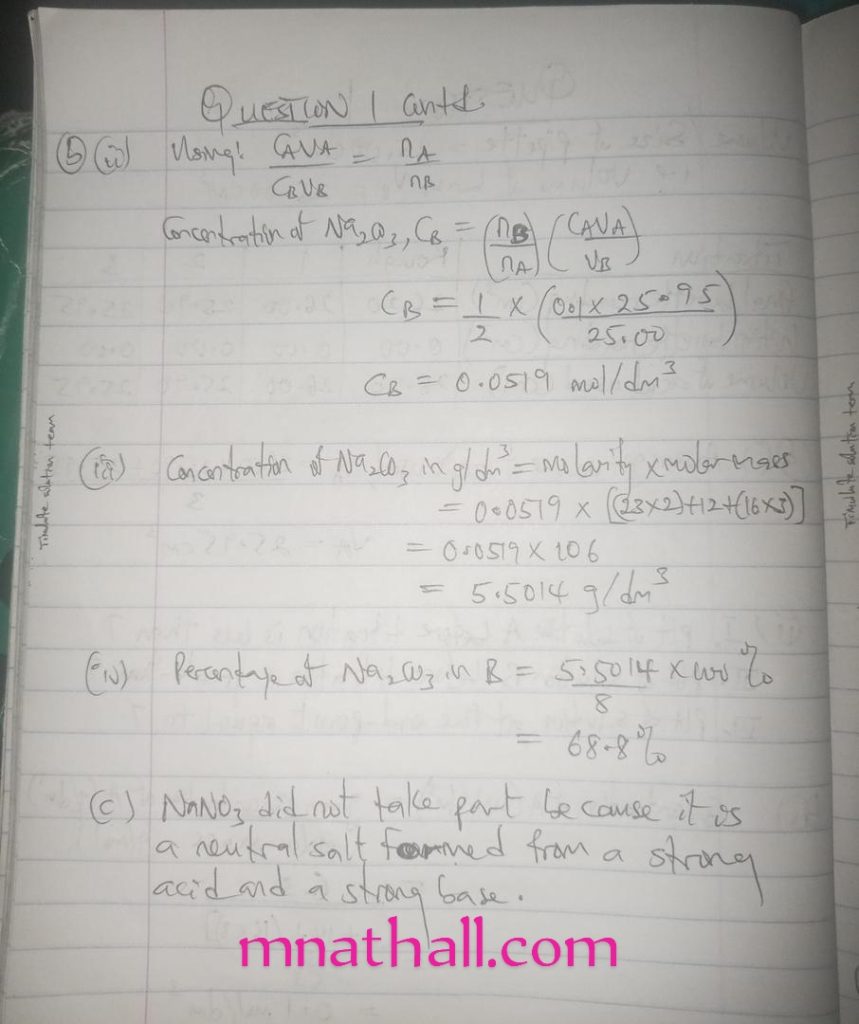 QUESTION 1 contd.
(b) (ii) Using: CAVA/CBVB = nA/nB
Concentration of Na2CO3, CB = (nB/nA) (CAVA/VB)
CB = 1/2 × (0.1 × 25.95/25.00)
CB = 0.0519 mol/dm³
(iii) Concentration of Na2CO3 in g/dm³ = molarity × molar mass
= 0.0519 × [(23×2)+12+(16×3)]
= 0.0519 × 106
= 5.5014 g/dm³
(iv) Percentage of Na2CO3 in B = 5.5014/8 × 100%
= 68.8%
(c) NaNO3 did not take part because it is
a neutral salt formed from a strong
acid and a strong base.
mnathall.com
solution team
solution team